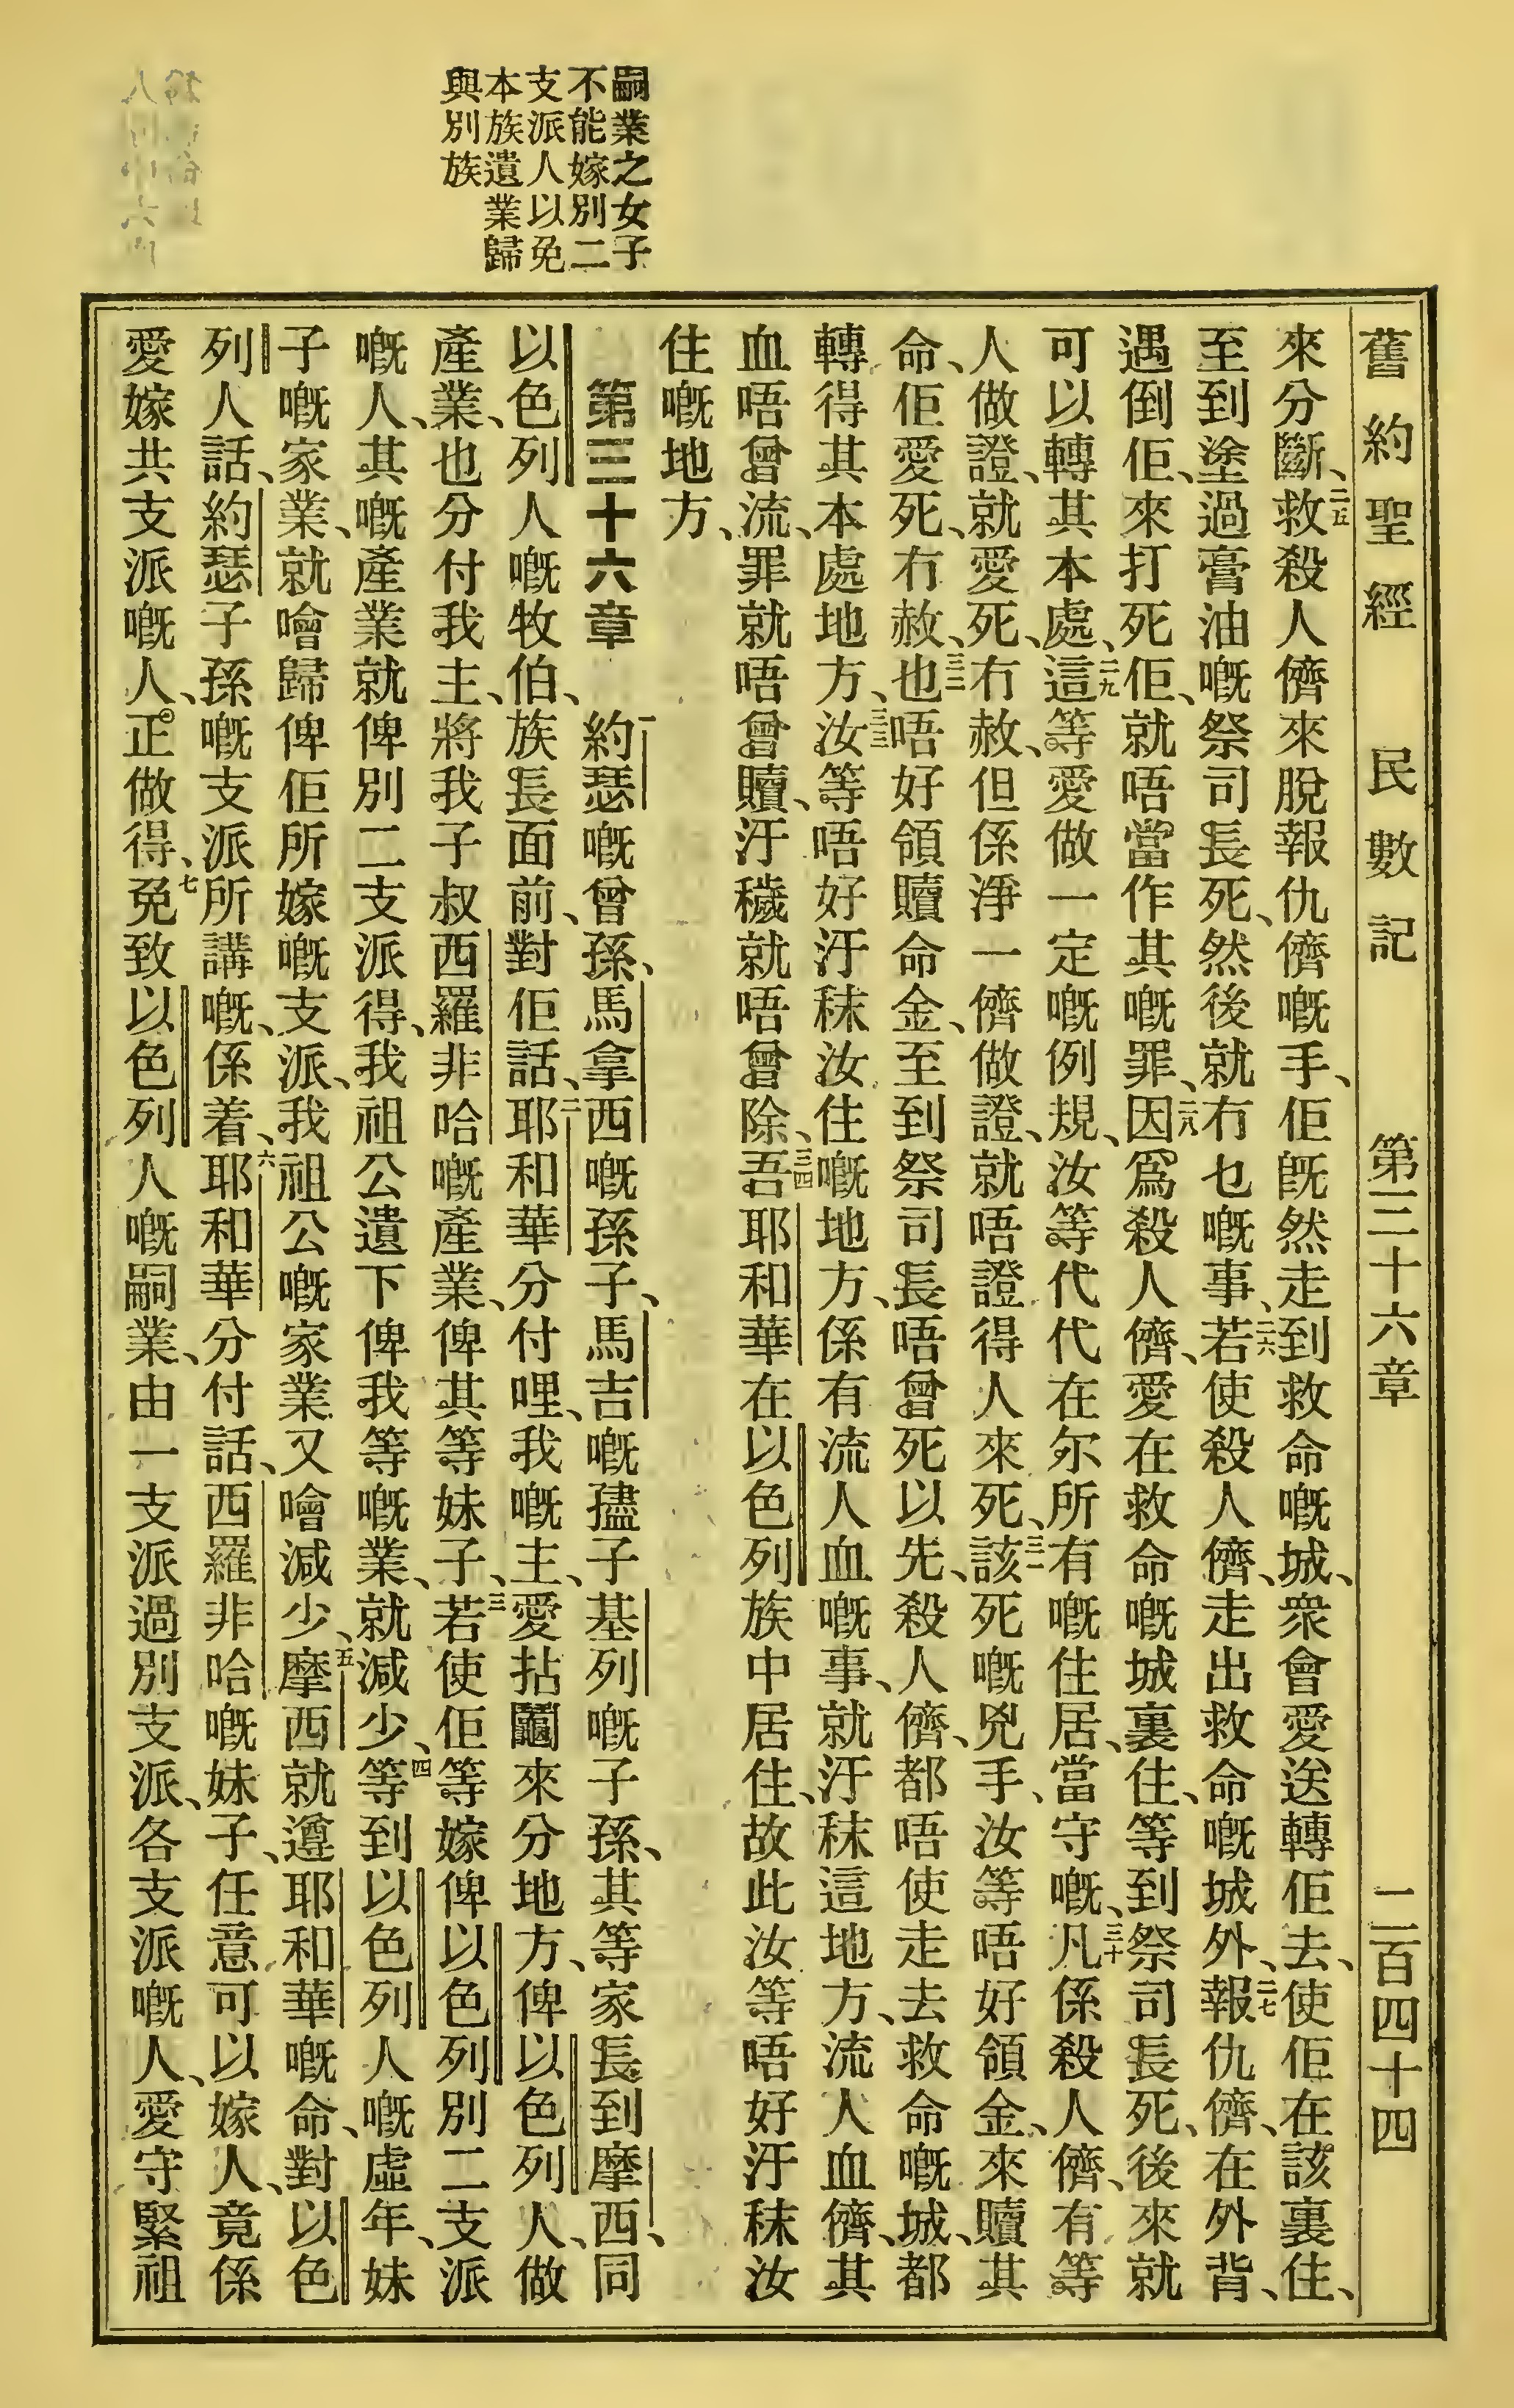 嗣業之女子
不能嫁別二
支派人以免
本族遺業歸
與別族
舊約聖經　民數記　第三十六章　二百四十四
來分斷、二五救殺人儕來脫報仇儕嘅手、佢旣然走到救命嘅城、衆會愛送轉佢去、使佢在該裏住、
至到塗過膏油嘅祭司長死、然後就冇乜嘅事、二六若使殺人儕、走出救命嘅城外、二七報仇儕、在外背、
遇倒佢、來打死佢、就唔當作其嘅罪、二八因爲殺人儕、愛在救命嘅城裏住、等到祭司長死、後來就
可以轉其本處、二九這等愛做一定嘅例規、汝等代代在尔所有嘅住居、當守嘅、三十凡係殺人儕、有等
人做證、就愛死、冇赦、但係淨一儕做證、就唔證得人來死、三一該死嘅兇手、汝等唔好領金、來贖其
命、佢愛死、冇赦、三二也唔好領贖命金、至到祭司長唔曾死以先、殺人儕、都唔使走去救命嘅城、都
轉得其本處地方、三三汝等唔好汙秣汝住嘅地方、係有流人血嘅事、就汙秣這地方、流人血儕、其
血唔曾流、罪就唔曾贖、汙穢就唔曾除、三四吾耶和華在以色列族中居住、故此汝等唔好汙秣汝
住嘅地方、
第三十六章　一約瑟嘅曾孫、馬拿西嘅孫子、馬吉嘅𡥧子基列嘅子孫、其等家長到摩西、同
以色列人嘅牧伯、族長面前、對佢話、二耶和華分付哩、我嘅主、愛拈鬮來分地方、俾以色列人、做
產業、也分付我主、將我子叔西羅非哈嘅產業、俾其等妹子、三若使佢等嫁俾以色列別二支派
嘅人、其嘅產業就俾別二支派得、我祖公遺下俾我等嘅業、就減少、四等到以色列人嘅虛年、妹
子嘅家業、就噲歸俾佢所嫁嘅支派、我祖公嘅家業又噲減少、五摩西就遵耶和華嘅命、對以色
列人話、約瑟子孫嘅支派所講嘅、係着、六耶和華分付話、西羅非哈嘅妹子、任意可以嫁人、竟係
愛嫁共支派嘅人、正做得、七免致以色列人嘅嗣業、由一支派過別支派、各支派嘅人、愛守緊祖